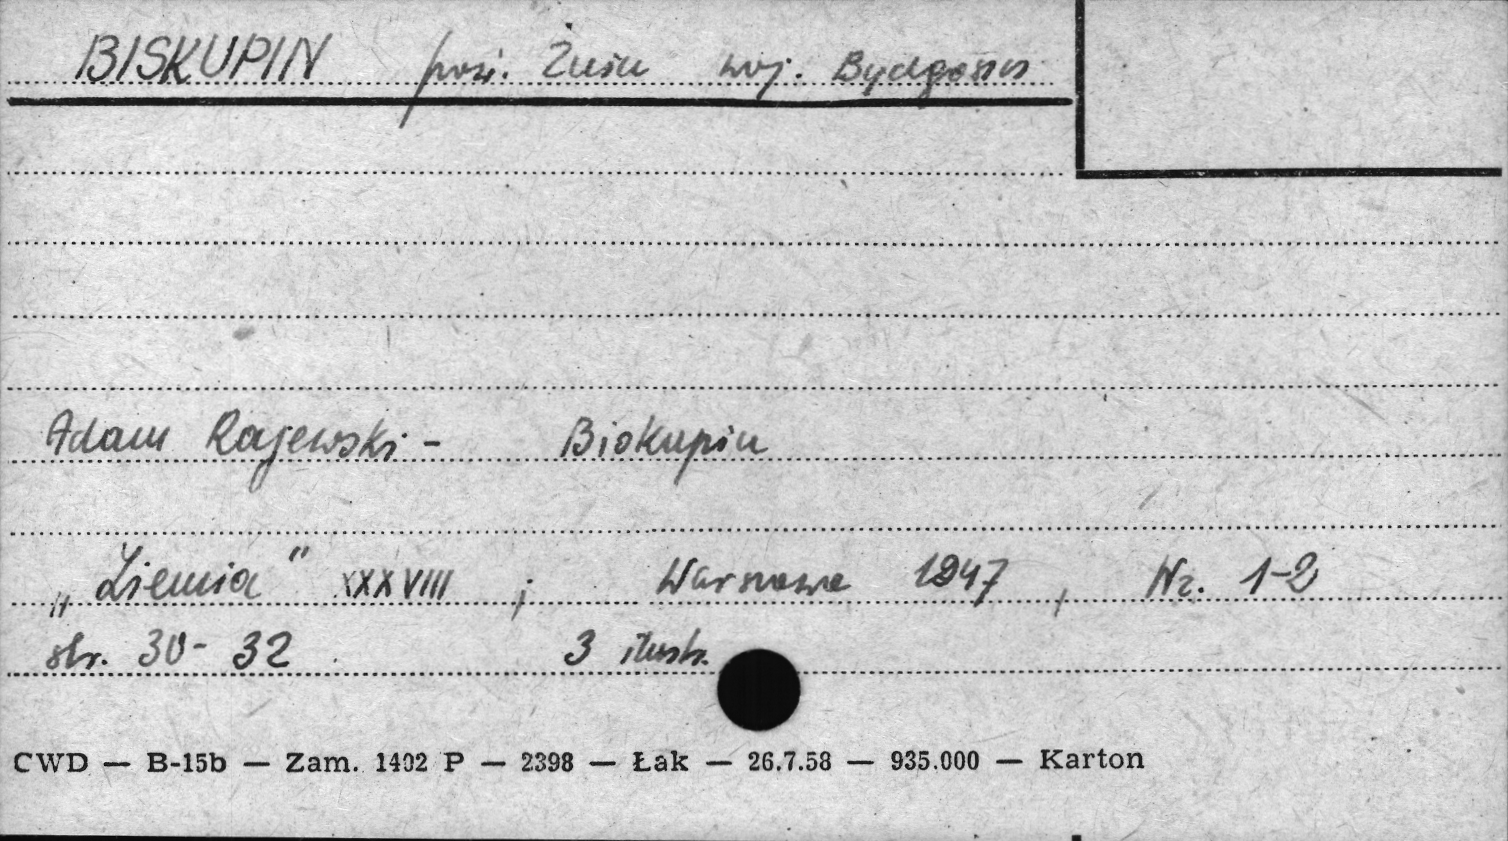 BISKUPIN pow. Żnin woj. Bydgoszcz
Adam Rajewski - Biskupin
„Ziemia" XXXVIII ; Warszawa 1947 , Nr. 1-2
str. 30-32 3 ilustr.
CWD — B-15b — Zam. 1402 P — 2398 — Łak — 26.7.58 — 935.000 — Karton